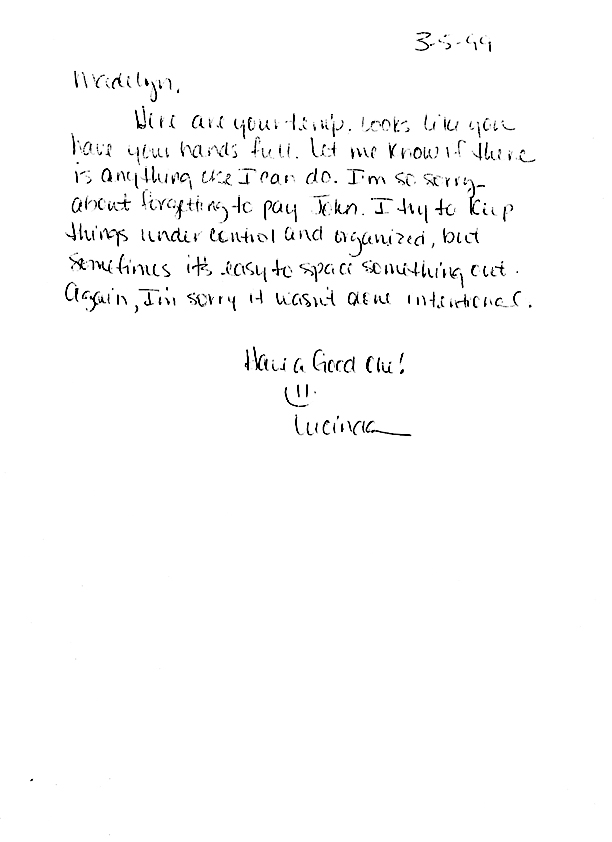 3-5-99
Madilyn,
Here are your temp. Looks like you
have your hands full. Let me know if there
is anything else I can do. I'm so sorry
about forgetting to pay John. I try to keep
things under control and organized, but
sometimes it's easy to space something out.
Again, I'm sorry it wasn't done intentional.
Have a Good One!
Lucinda